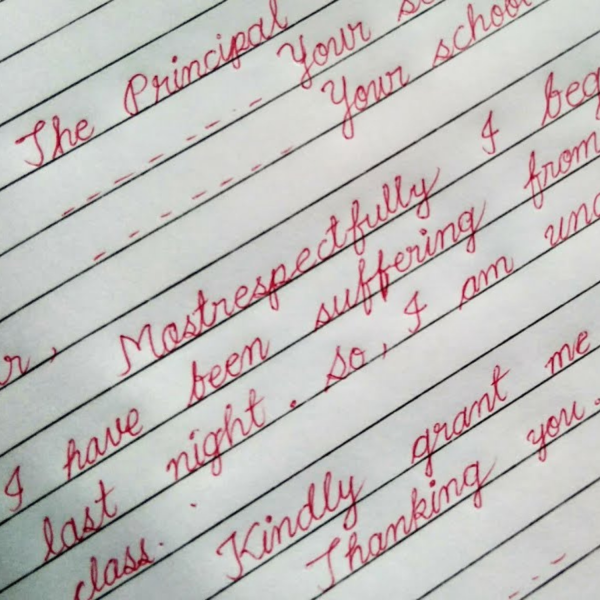 The Principal
- - - - - - - Your sc
- - - - - - - Your school
r, Mostrespectfully I beg
I have been suffering from
last night. So, I am und
class. Kindly grant me
Thanking you.
- - -